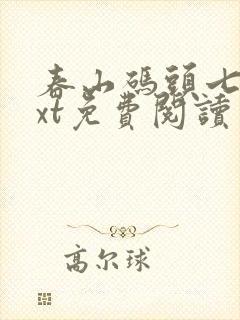 春山碼頭七
xt免費閱讀
高尔球